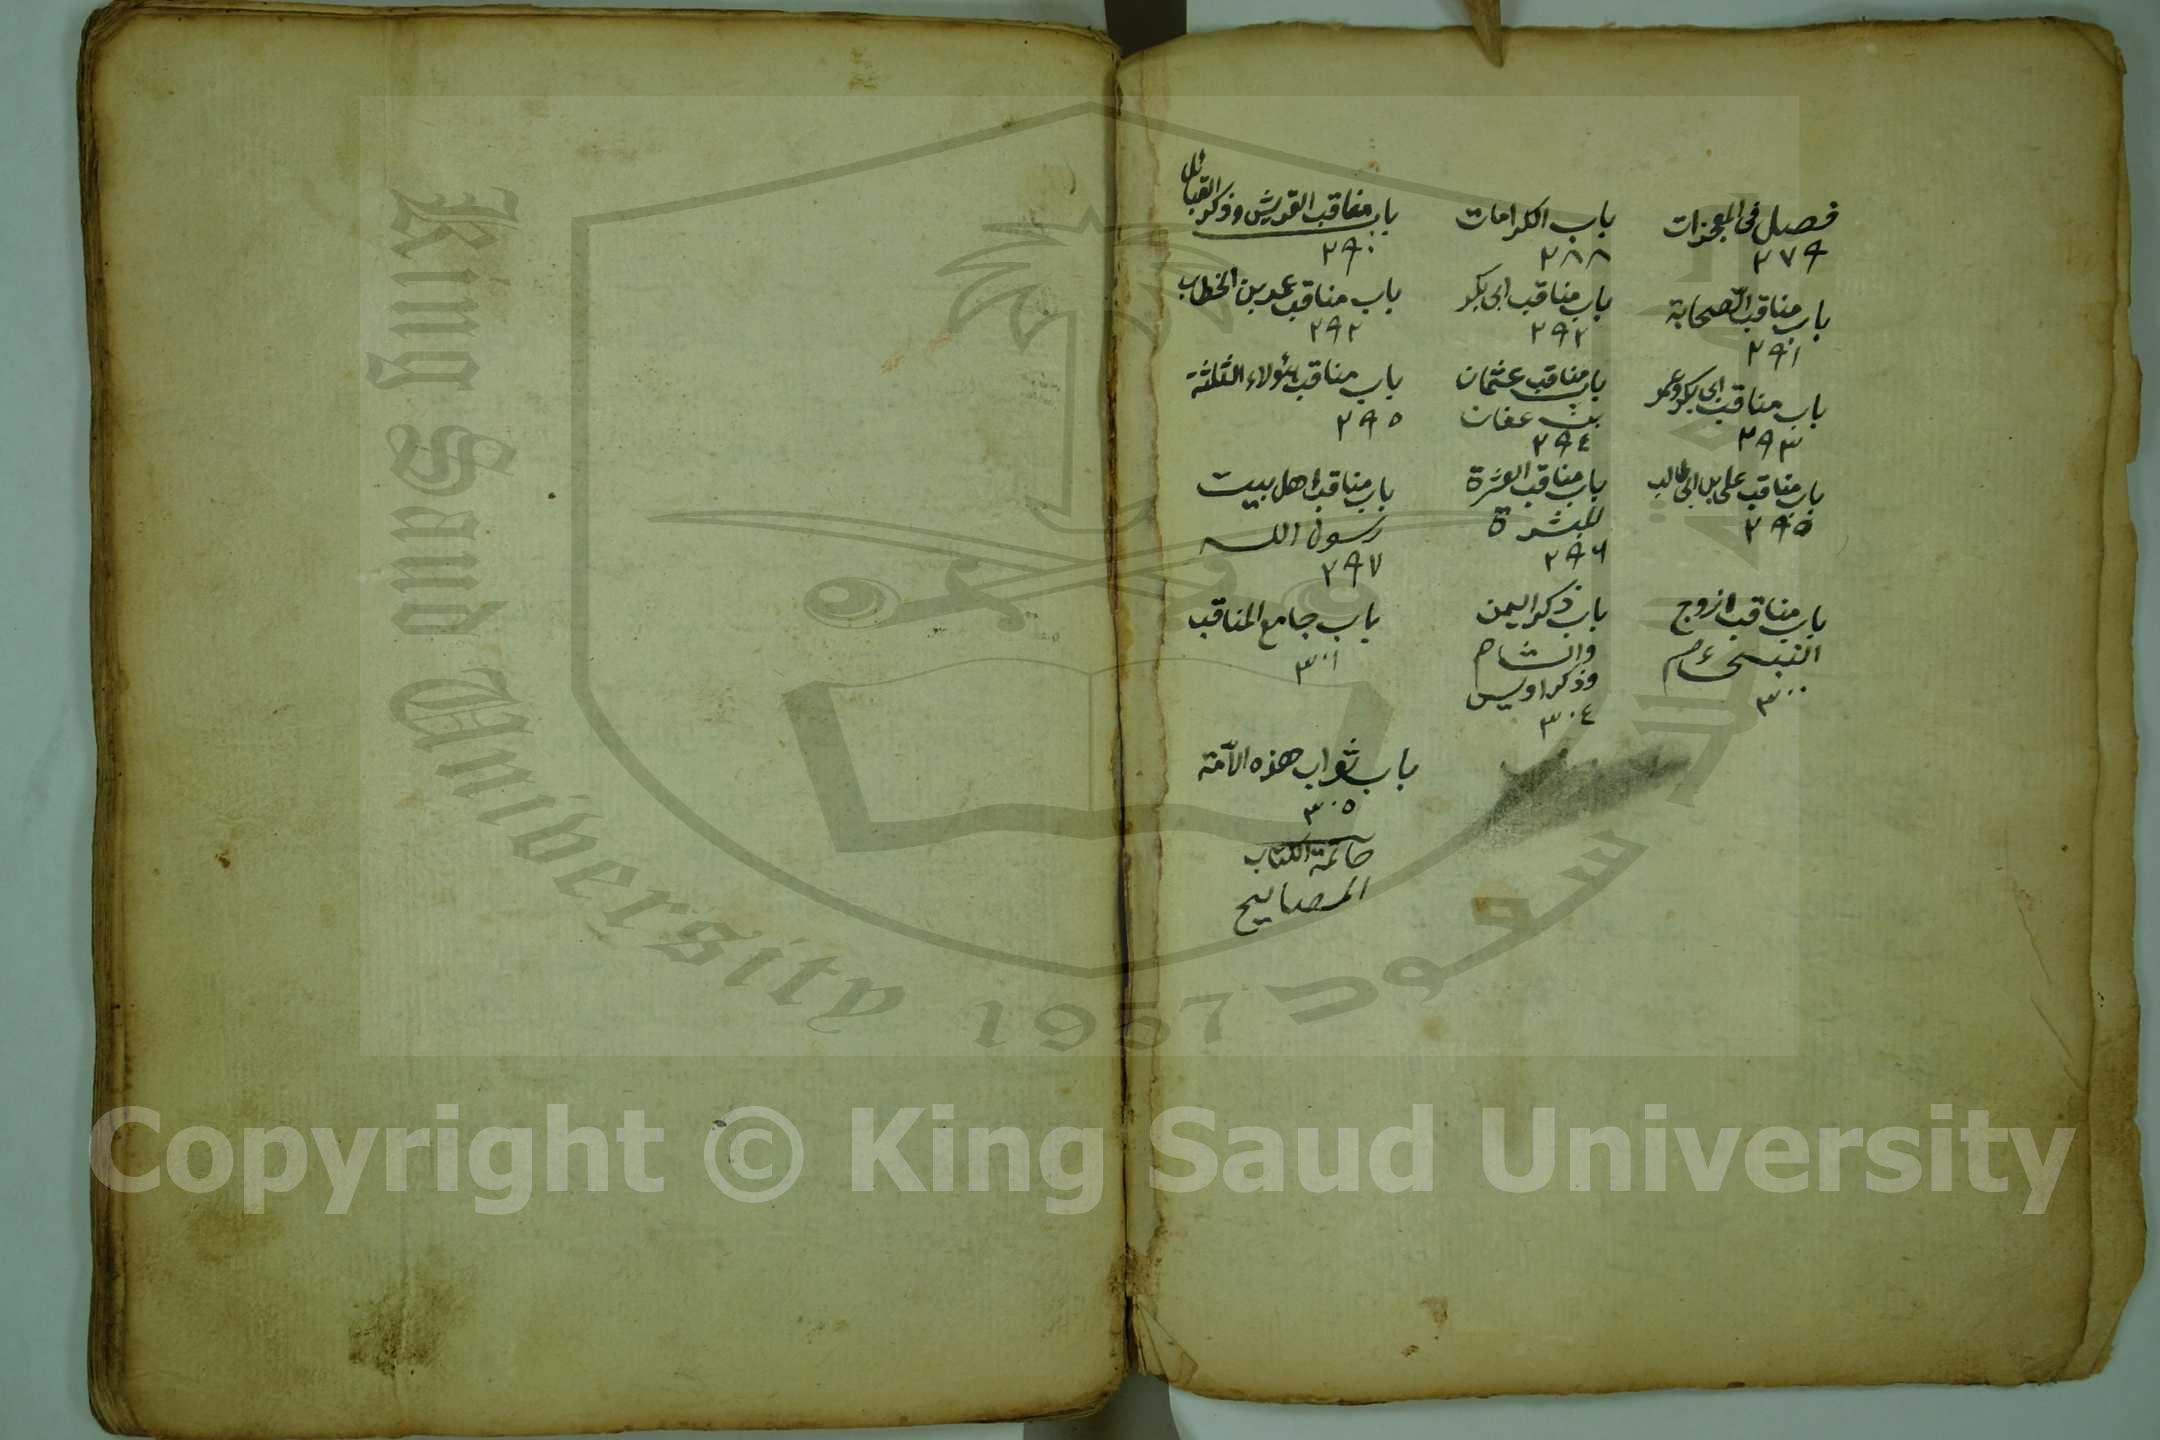 فصل فى المعجزات
٢٧٩
باب الكرامات
٢٨٨
باب مناقب القريش وذكر القبائل
٢٩٠
باب مناقب الصحابة
٢٩١
باب مناقب ابى بكر
٢٩٢
باب مناقب عمر بن الخطاب
٢٩٢
باب مناقب ابى بكر وعمر
٢٩٣
باب مناقب عثمان
بن عفان
٢٩٤
باب مناقب هؤلاء الثلثة
٢٩٥
باب مناقب على بن ابى طالب
٢٩٥
باب مناقب العشرة
المبشرة
٢٩٦
باب مناقب اهل بيت
رسول الله
٢٩٧
باب مناقب ازوج
النبى عم
٣٠٠
باب جامع المناقب
٣٠١
باب ذكر اليمن
والشام
وذكر اويس
٣٠٤
باب ثواب هذه الأمة
٣٠٥
خاتمة الكتاب
المصابيح
King Saud University
1957
سعود
Copyright © King Saud University